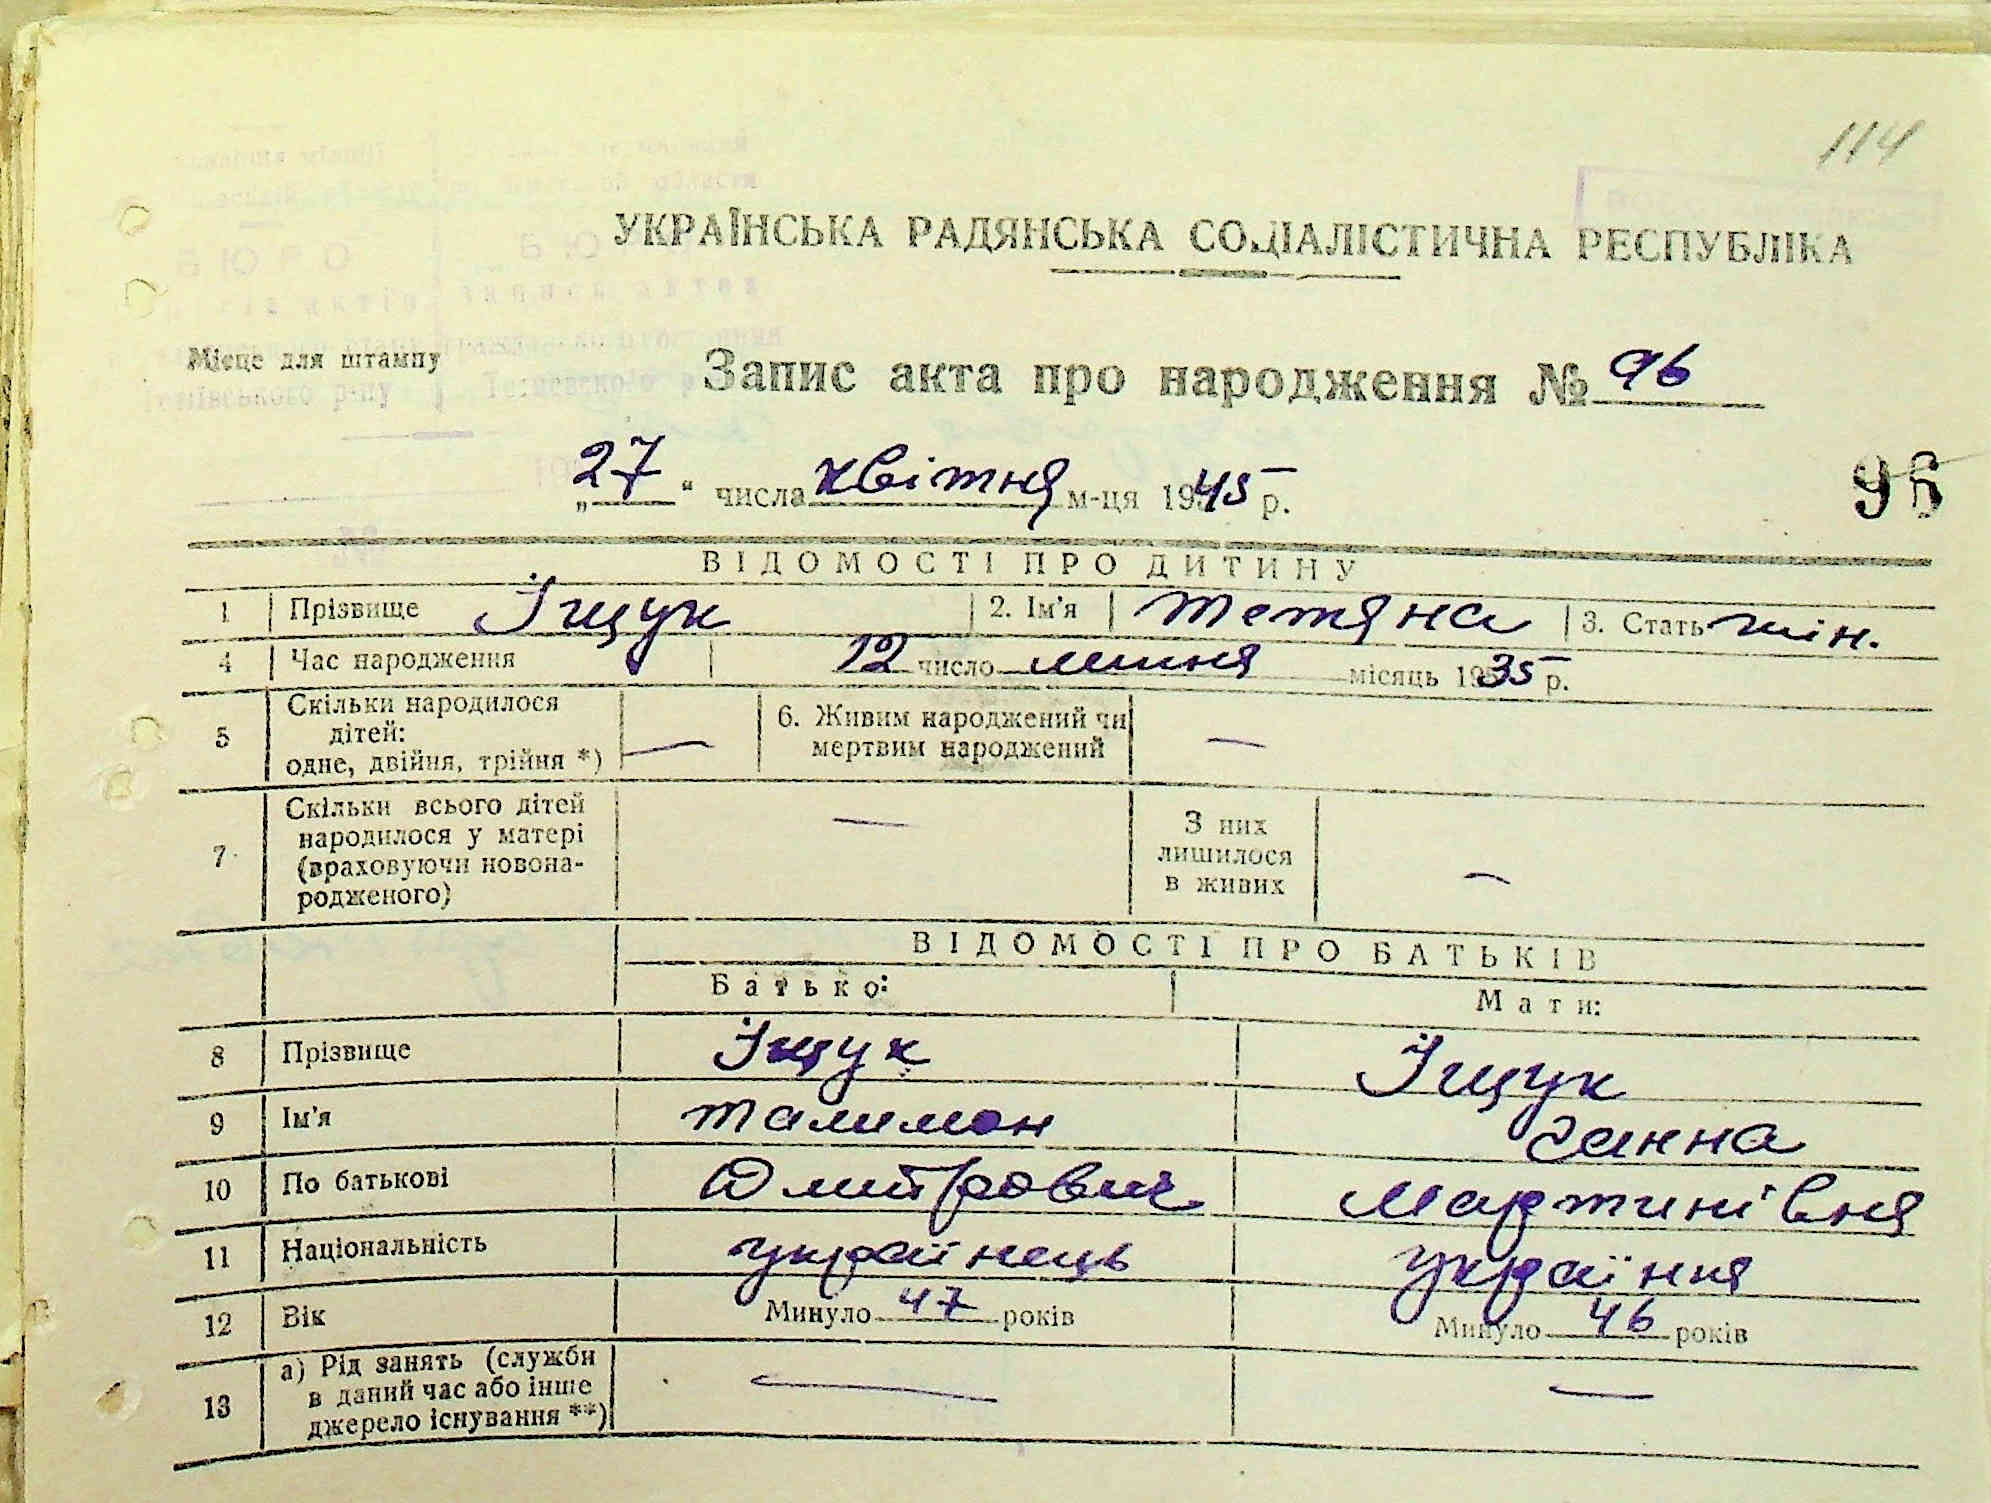 114
УКРАЇНСЬКА РАДЯНСЬКА СОЦІАЛІСТИЧНА РЕСПУБЛІКА
Місце для штампу
Запис акта про народження № 96
„27“ числа квітня м-ця 1945 р.
96
ВІДОМОСТІ ПРО ДИТИНУ
1 Прізвище Іщук 2. Ім'я Тетяна 3. Стать жін.
4 Час народження 12 число липня місяць 1935 р.
5 Скільки народилося дітей: одне, двійня, трійня *) — 6. Живим народжений чи мертвим народжений —
7 Скільки всього дітей народилося у матері (враховуючи новонародженого) — З них лишилося в живих —
ВІДОМОСТІ ПРО БАТЬКІВ
Батько: Мати:
8 Прізвище Іщук Іщук
9 Ім'я Талимон Ганна
10 По батькові Дмитрович Мартинівня
11 Національність українець україння
12 Вік Минуло 47 років Минуло 46 років
13 а) Рід занять (служби в даний час або інше джерело існування **) — —